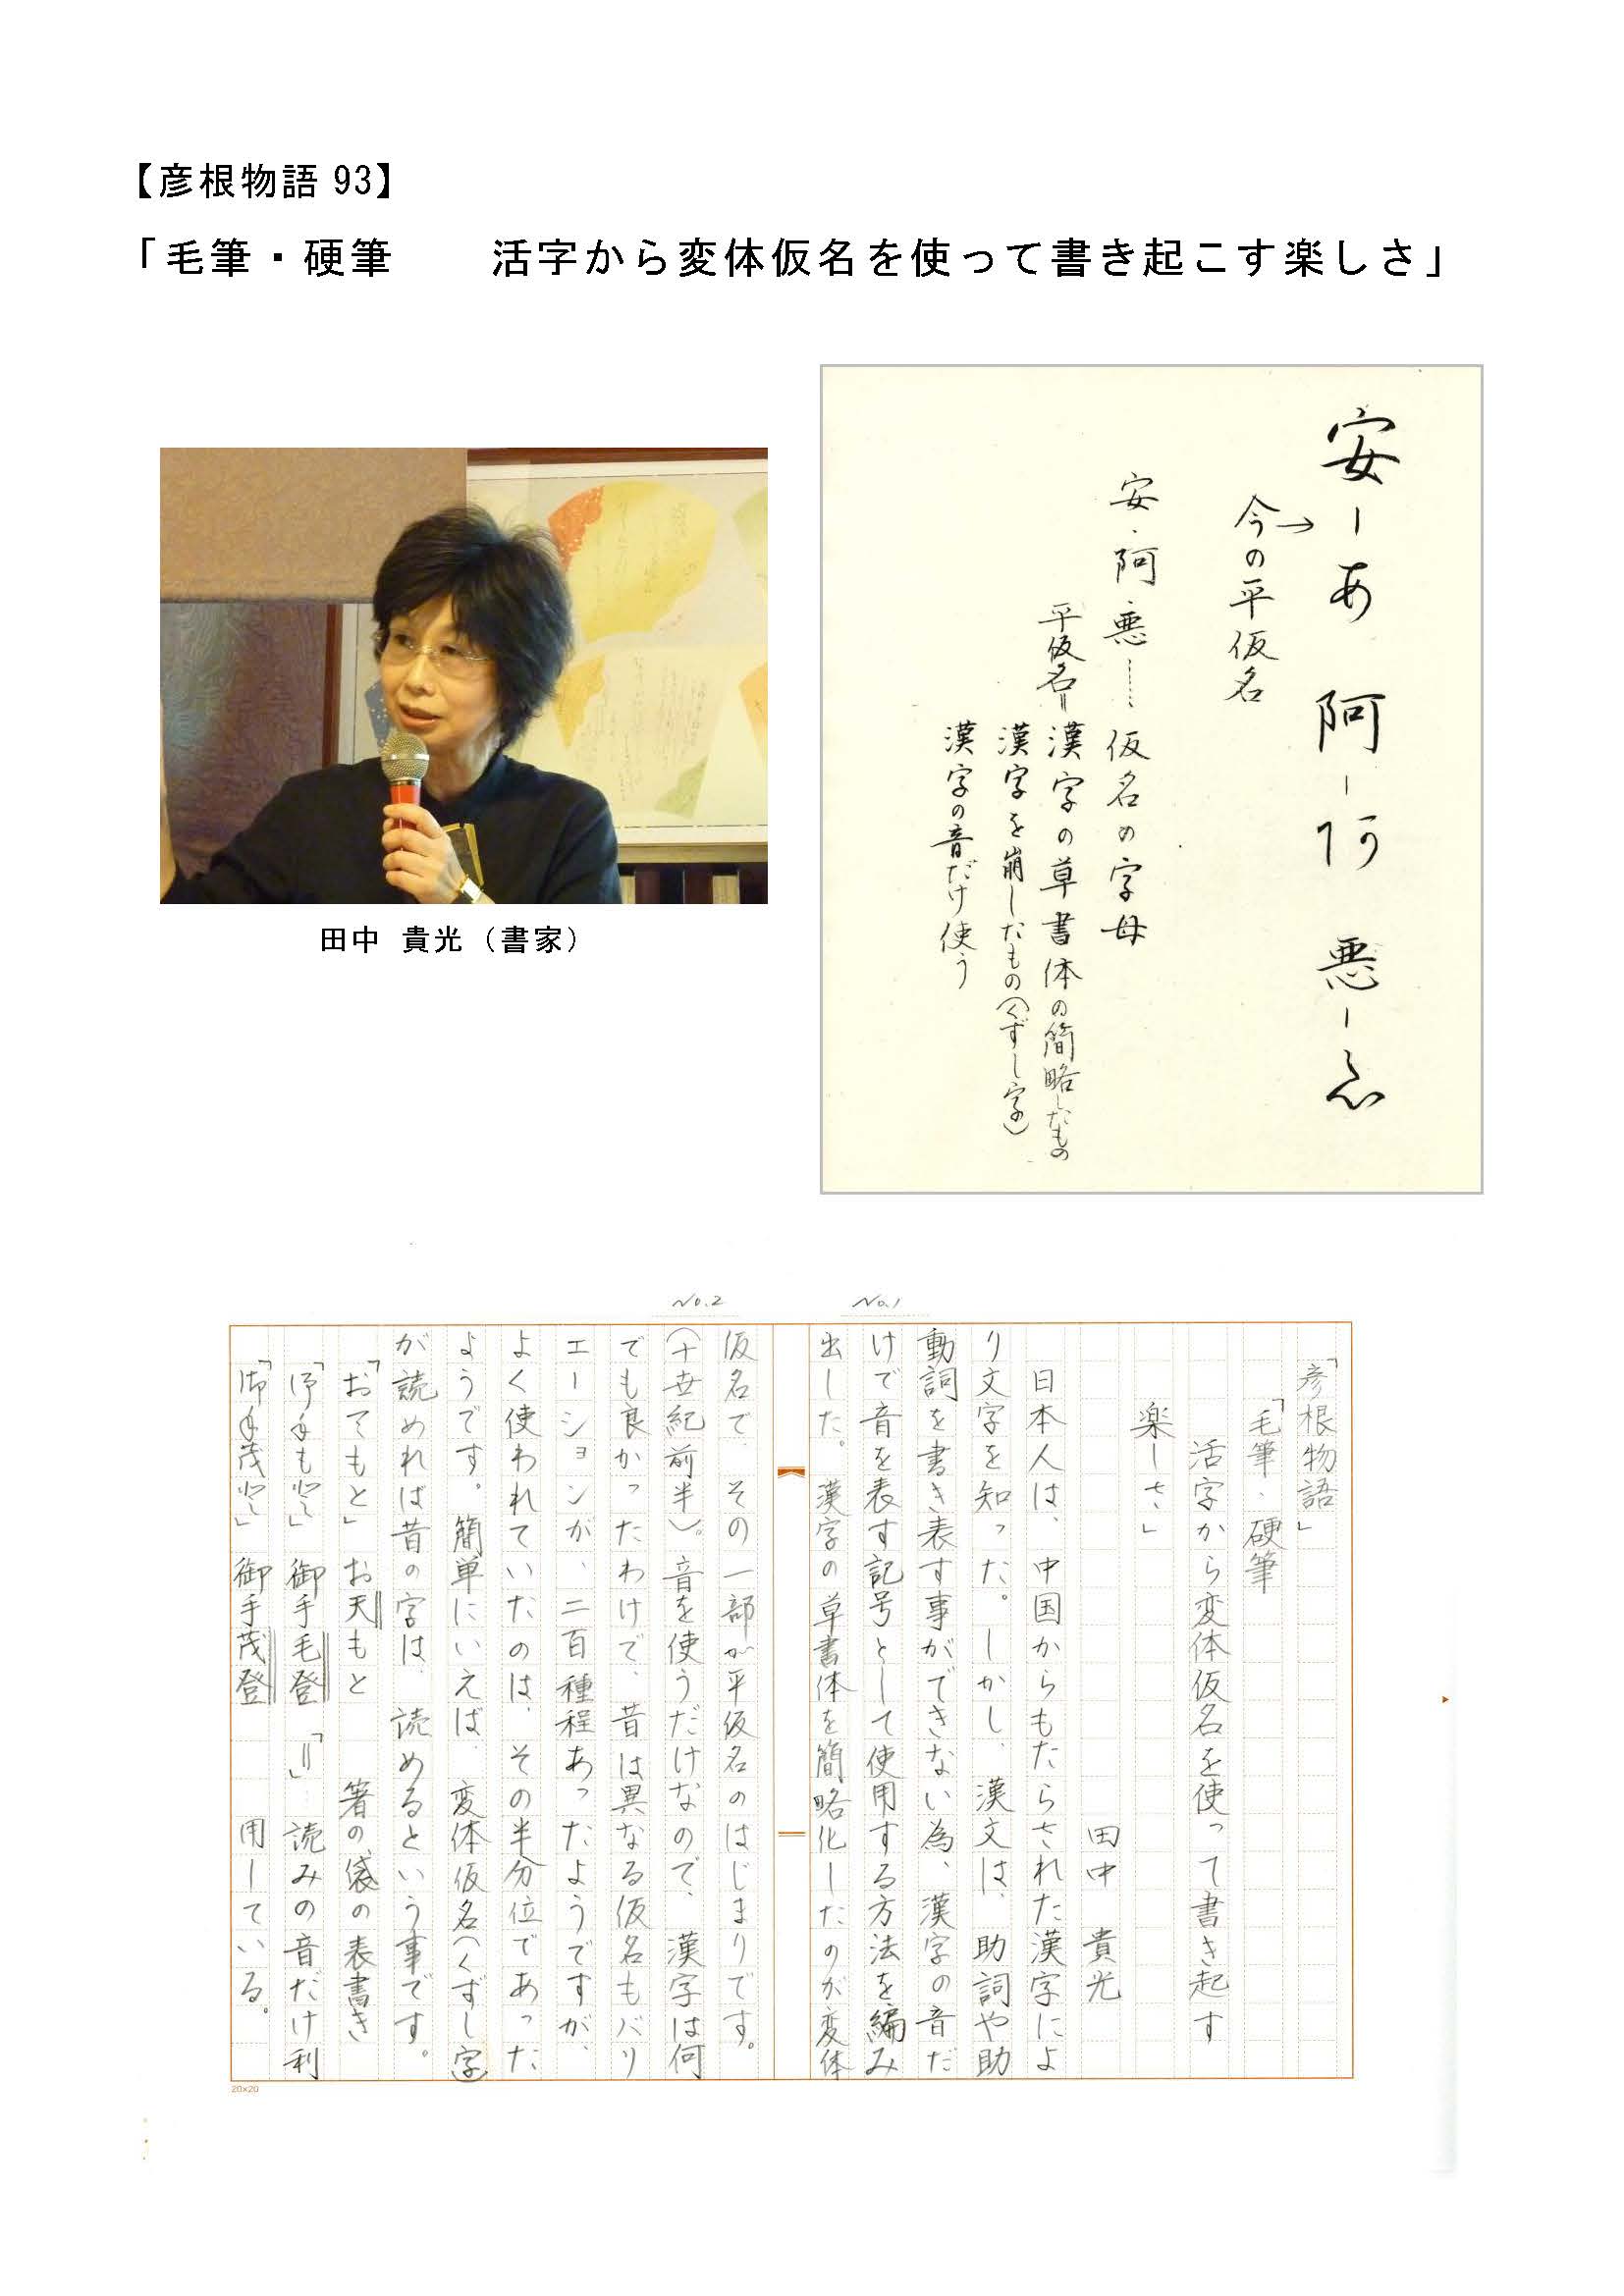 【彦根物語93】
「毛筆・硬筆　　活字から変体仮名を使って書き起こす楽しさ」
田中 貴光（書家）
安ーあ 阿ー 悪ー
今の平仮名
安・阿 悪……仮名の字母
平仮名＝漢字の草書体の簡略したもの
漢字を崩したもの（くずし字）
漢字の音だけ使う
No.1
「彦根物語」
「毛筆・硬筆
活字から変体仮名を使って書き起す
楽しさ」
田中 貴光
日本人は、中国からもたらされた漢字によ
り文字を知った。しかし、漢文は、助詞や助
動詞を書き表す事ができない為、漢字の音だ
けで音を表す記号として使用する方法を編み
出した。漢字の草書体を簡略化したのが変体
No.2
仮名で、その一部が平仮名のはじまりです。
（十世紀前半）。音を使うだけなので、漢字は何
でも良かったわけで、昔は異なる仮名もバリ
エーションが、二百種程あったようですが、
よく使われていたのは、その半分位であった
ようです。簡単にいえば、変体仮名（くずし字）
が読めれば昔の字は、読めるという事です。
「おてもと」お天もと　箸の袋の表書き
御手毛登「〃」読みの音だけ利
御手茂登　用している。
20×20